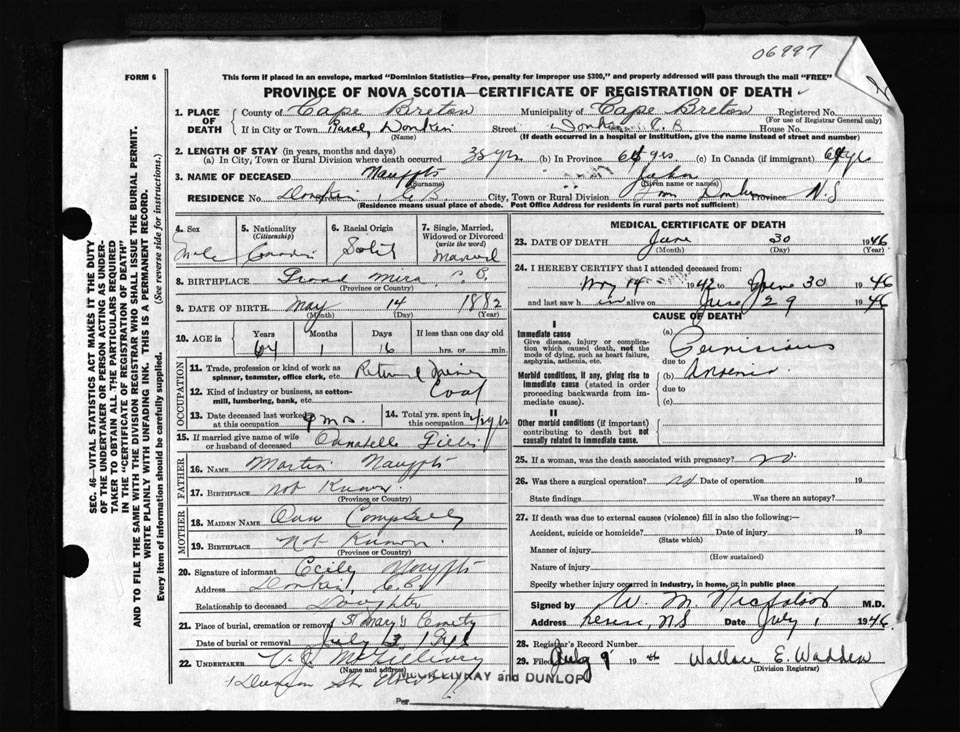 06997
FORM 6
This form if placed in an envelope, marked "Dominion Statistics—Free, penalty for improper use $300," and properly addressed will pass through the mail "FREE"
PROVINCE OF NOVA SCOTIA—CERTIFICATE OF REGISTRATION OF DEATH
SEC. 46—VITAL STATISTICS ACT MAKES IT THE DUTY
OF THE UNDERTAKER OR PERSON ACTING AS UNDER-
TAKER TO OBTAIN ALL THE PARTICULARS REQUIRED
IN THE "CERTIFICATE OF REGISTRATION OF DEATH"
AND TO FILE THE SAME WITH THE DIVISION REGISTRAR WHO SHALL ISSUE THE BURIAL PERMIT.
WRITE PLAINLY WITH UNFADING INK. THIS IS A PERMANENT RECORD.
Every item of information should be carefully supplied. (See reverse side for instructions.)
1. PLACE OF DEATH County of Cape Breton Municipality of Cape Breton Registered No.
(For use of Registrar General only)
If in City or Town Rural, Donkin Street Donkin C. B House No.
(Name) (If death occurred in a hospital or institution, give the name instead of street and number)
2. LENGTH OF STAY (in years, months and days)
(a) In City, Town or Rural Division where death occurred 35 yrs (b) In Province 64 yrs (c) In Canada (if immigrant) 64 yr
3. NAME OF DECEASED Nauffts John
(Surname) (Given name or names)
RESIDENCE No. Donkin C. B. City, Town or Rural Division Donkin Province N.S
(Residence means usual place of abode. Post Office Address for residents in rural parts not sufficient)
4. Sex
5. Nationality
(Citizenship)
6. Racial Origin
7. Single, Married,
Widowed or Divorced
(write the word)
Male Married
8. BIRTHPLACE Grand Mira C. B.
(Province or Country)
9. DATE OF BIRTH May 14 1882
(Month) (Day) (Year)
10. AGE in Years Months Days If less than one day old
64 1 16 hrs. or min
OCCUPATION
11. Trade, profession or kind of work as
spinner, teamster, office clerk, etc. Retired Miner
12. Kind of industry or business, as cotton-
mill, lumbering, bank, etc. Coal
13. Date deceased last worked
at this occupation 9 mos
14. Total yrs. spent in
this occupation yrs
15. If married give name of wife
or husband of deceased
FATHER
16. NAME Martin Nauffts
17. BIRTHPLACE Not Known
(Province or Country)
MOTHER
18. MAIDEN NAME Ann Campbell
19. BIRTHPLACE Not Known
(Province or Country)
20. Signature of informant Cecily Nauffts
Address Donkin, C.B
Relationship to deceased Daughter
21. Place of burial, cremation or removal St Mary's Cemetery
Date of burial or removal July 3, 1946
22. UNDERTAKER V. J. McGillivray
(Name and address)
McGILLIVRAY and DUNLOP
Per
MEDICAL CERTIFICATE OF DEATH
23. DATE OF DEATH June 30 1946
(Month) (Day) (Year)
24. I HEREBY CERTIFY that I attended deceased from:
May 14 1942 to June 30 1946
and last saw him alive on June 29 1946
CAUSE OF DEATH
I
Immediate cause
Give disease, injury or complica-
tion which caused death, not the
mode of dying, such as heart failure,
asphyxia, asthenia, etc.
(a) Pernicious
due to
Morbid conditions, if any, giving rise to
immediate cause (stated in order
proceeding backwards from im-
mediate cause).
(b) Anaemia
due to
(c)
II
Other morbid conditions (if important)
contributing to death but not
causally related to immediate cause.
25. If a woman, was the death associated with pregnancy? no.
26. Was there a surgical operation? no Date of operation 19
State findings Was there an autopsy?
27. If death was due to external causes (violence) fill in also the following:—
Accident, suicide or homicide? Date of injury 19
(State which)
Manner of injury
(How sustained)
Nature of injury
Specify whether injury occurred in industry, in home, or in public place
Signed by W. M. Nicholson M.D.
Address N.S Date July 1 1946
28. Registrar's Record Number
29. Filed July 9 1946 Wallace E. Wadden
(Division Registrar)